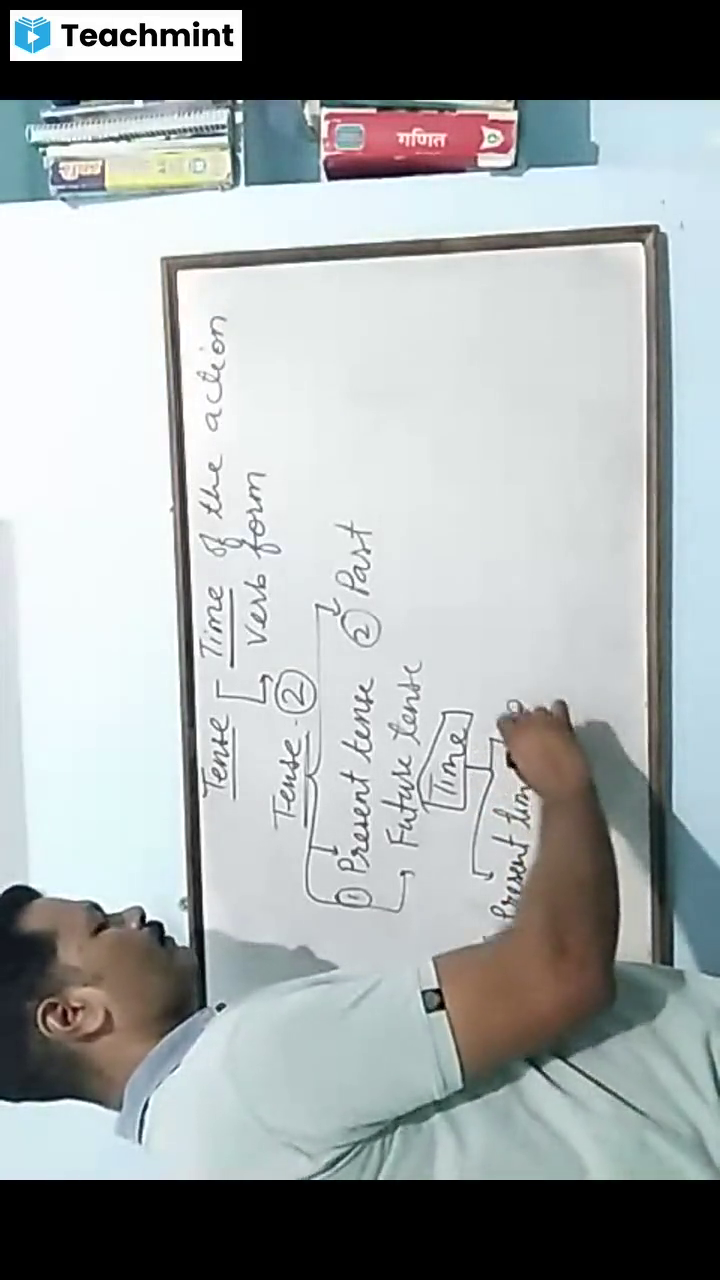 Teachmint
गणित
Tense Time of the action
Verb form
Tense. 2
① Present tense ② Past
Future tense
Time
Present tim